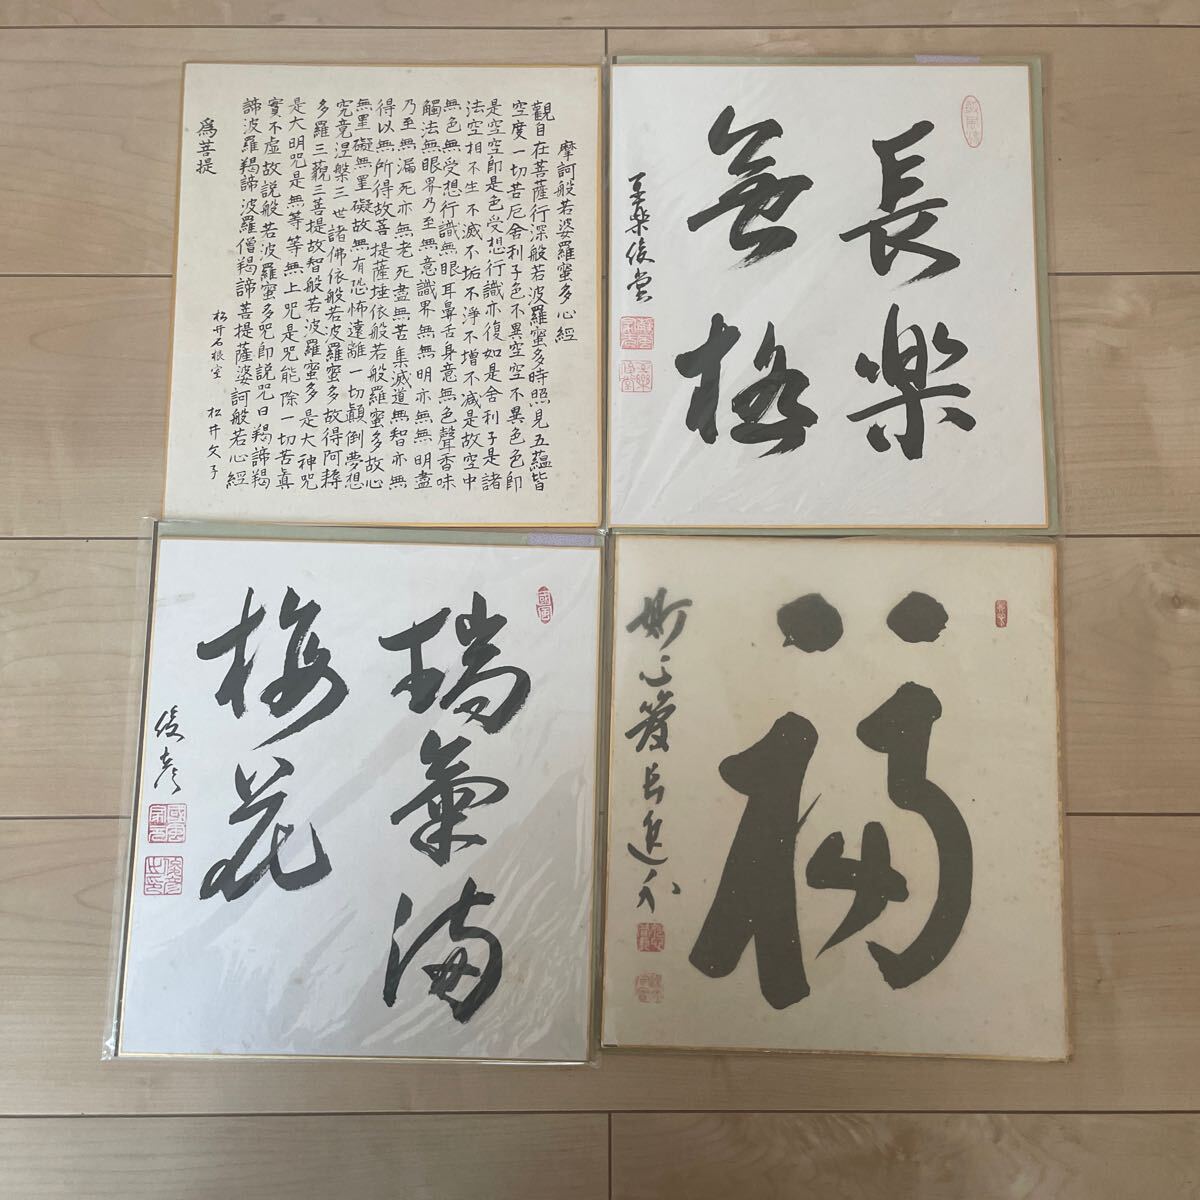 摩訶般若婆羅蜜多心經
觀自在菩薩行深般若波羅蜜多時照見五蘊皆
空度一切苦厄舍利子色不異空空不異色色即
是空空即是色受想行識亦復如是舍利子是諸
法空相不生不滅不垢不淨不增不減是故空中
無色無受想行識無眼耳鼻舌身意無色聲香味
觸法無眼界乃至無意識界無無明亦無無明盡
乃至無漏死亦無老死盡無苦集滅道無智亦無
得以無所得故菩提薩埵依般若般羅蜜多故心
無罣礙無罣礙故無有恐怖遠離一切顛倒夢想
究竟涅槃三世諸佛依般若波羅蜜多故得阿耨
多羅三藐三菩提故智般若波羅蜜多是大神咒
是大明咒是無等等無上咒是咒能除一切苦眞
實不虛故説般若波羅蜜多咒即説咒曰羯諦羯
諦波羅羯諦波羅僧羯諦菩提薩婆訶般若心經
爲菩提
松井石根室 松井文子
長楽
無極
至楽俊堂
瑞氣満
梅花
國風
俊彦
福
妙心管長